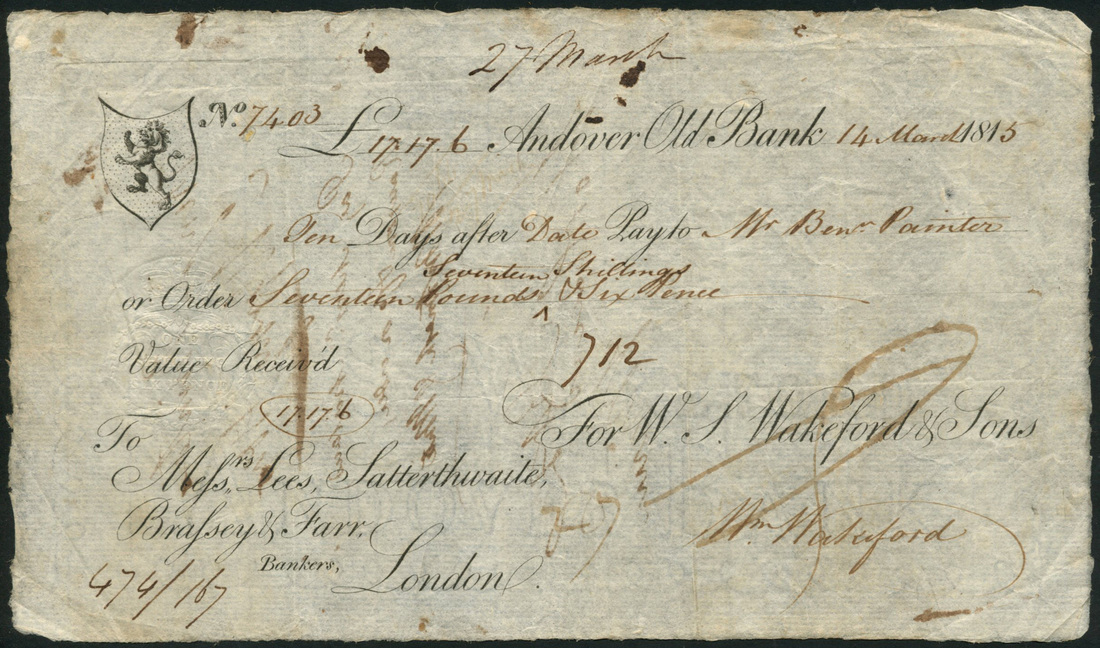 27 March
No. 7403 £17.17.6 Andover Old Bank 14 March 1815
Ten Days after Date Pay to Mr Benn Painter
Seventeen Shillings
or Order Seventeen Pounds ^ & Six Pence
712
Value Receiv'd
17.17.6
For W. S. Wakeford & Sons
To
Meſsrs Lees, Satterthwaite,
Braſsey & Farr,
Wm Wakeford
Bankers, London.
474/167